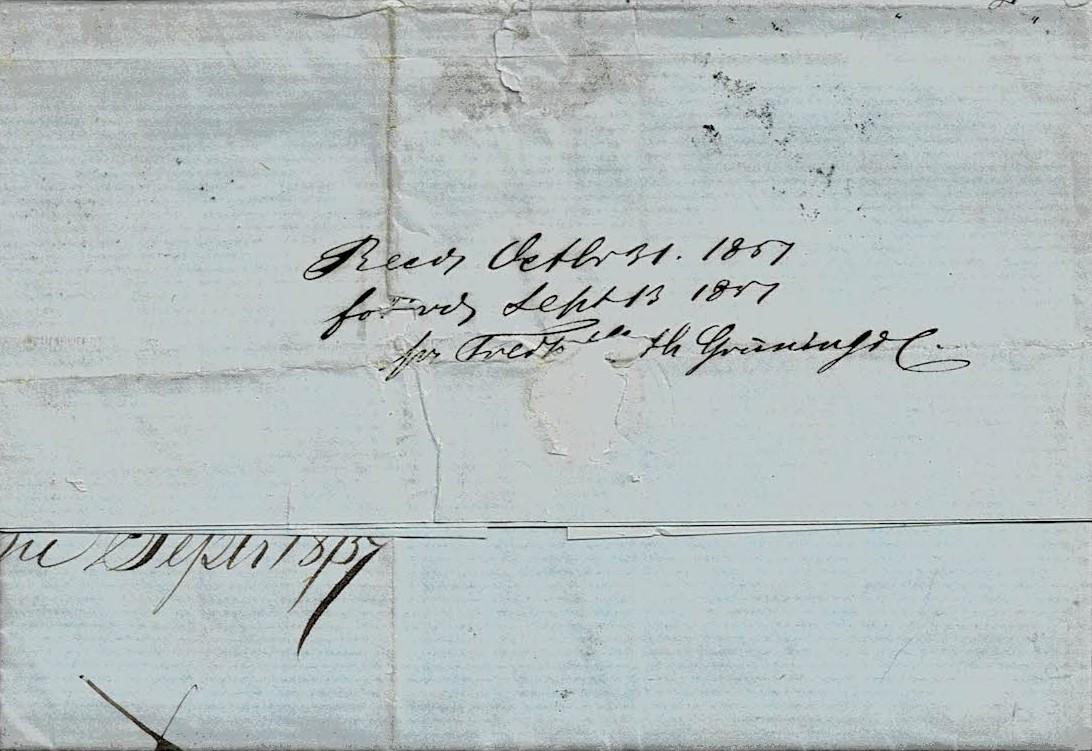 Recd Octbr 31. 1857
forwd Sept 13 1857
pr Fredk th Grüning & C.
Septr 1857